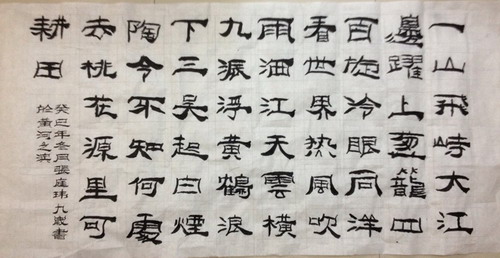 一山飛峙大江
邊躍上葱蘢四
百旋冷眼向洋
看世界热風吹
雨洒江天雲橫
九派浮黄鶴浪
下三吴起白煙
陶令不知何處
去桃花源里可
耕田
癸巳年冬月張庭瑋九歲書
於黄河之滨